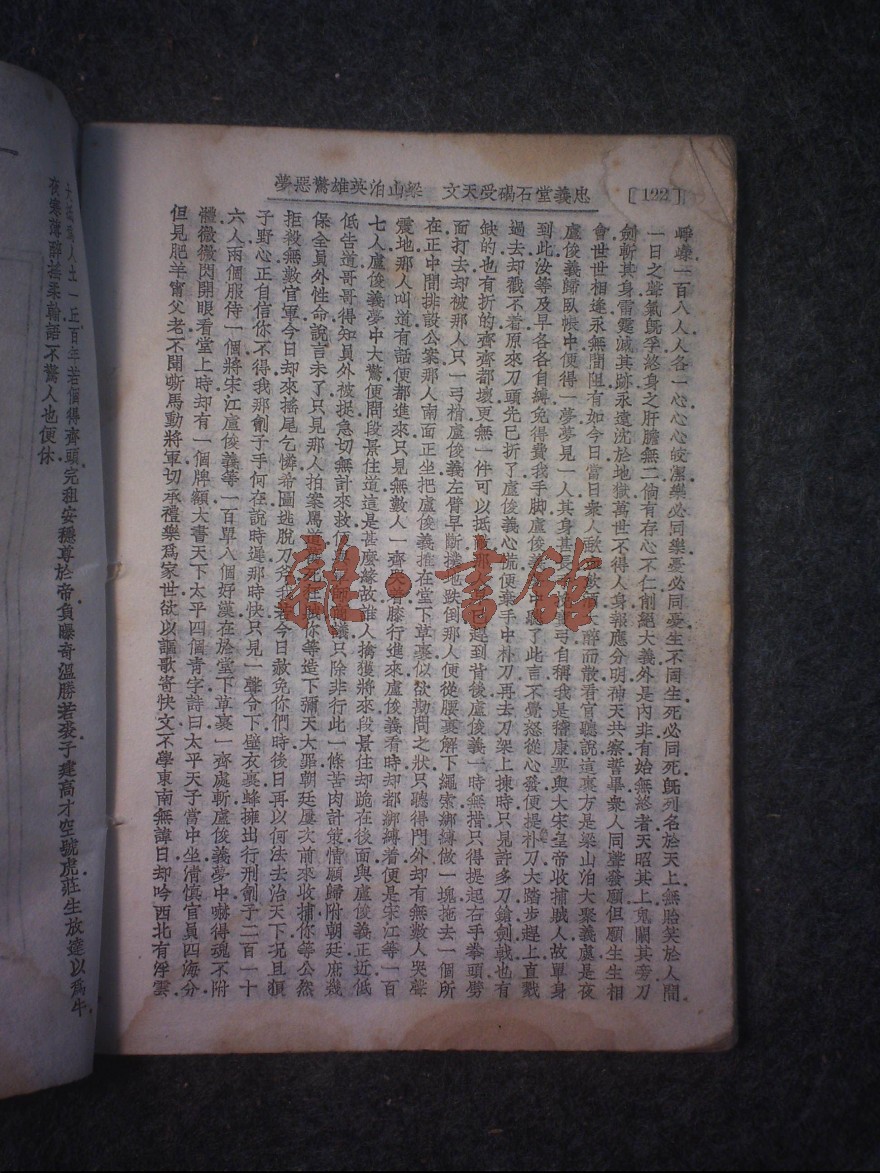 [122] 忠義堂石碣受天文 梁山泊英雄驚惡夢
崢嶸一百八人人各一心心心皎潔樂必同樂憂必同憂生不同生死必同死旣列名於天上無胎笑於人間
一日之聲氣旣孚終身之肝膽無二倘有存心不仁削絕大義外是內非有始無終者天昭其上鬼闞其旁刀
劍斬其身雷霆滅其跡永遠沈於地獄萬世不得人身報應分明神天共察誓畢衆人同聲發願但願生生相
會世世相逢永無間阻有如今日當日衆人歃血飲酒大醉而散看官聽說這裏方是梁山泊大聚義處是夜
盧俊義歸臥帳中便得一夢夢見一人其身甚長 弓自稱我是嵇康要與大宋皇帝收捕賊人故單身
到此汝等及早各各自縛免得費我手脚盧俊義 聽了此言不覺怒從心發便提朴刀大踏步趕上直戳
過去却戳不着原來刀頭先已折了盧俊義心慌便棄手中朴刀再去刀架上揀時只見許多刀鎗劍戟也有
缺的也有折的齊齊都壞更無一件可以抵敵那人早已趕到背後盧俊義一時無措只得提起右手拳頭劈
面打去却被那人只一弓梢盧俊義左臂早斷撲地跌倒那人便從腰裏解下繩索綁縛做一塊拖去一個所
在正中間排設公案那人南面正坐把盧俊義推在堂下草裏似欲勘問之狀只聽得門外却有無數人哭聲
震地那人叫道有話便都進來只見無數人一齊哭着膝行進來盧俊義看時却都綁縛着便是宋江等一百
七人盧俊義夢中大驚便問段景住道這是甚麽緣故誰人擒獲將來段景住却跪在後面與盧俊義正近低
低告道哥哥得知員外被捉急切無計來救便與軍師商議只除非行此一條苦肉計策情願歸附朝廷庶幾
保全員外性命說言未了只見那人拍案罵道萬死狂賊你等造下彌天大罪朝廷屢次前來收捕你等公然
拒殺無數官軍今日却來搖尾乞憐希圖逃脫刀斧我若今日赦免你們時後日再以何法去治天下况且狼
子野心正自信你不得我那劊子手何在說時遲那時快只見一聲令下壁衣裏蜂擁出行刑劊子二百一十
六人兩個服侍一個將宋江盧俊義等一百單八個好漢在於堂下草裏一齊處斬盧俊義夢中嚇得魂不附
體微微閃開眼看堂上時却有一個牌額大書天下太平四個青字詩曰太平天子當中坐清愼官員四海分
但見肥羊甯父老不聞嘶馬動將軍切承禮樂爲家世欲以謳歌寄快文不學東南無諱日却吟西北有浮雲
大抵爲人土一丘百年若個得齊頭完租安穩尊於帝負曝奇溫勝若裘子建高才空號虎莊生放達以爲牛
夜寒薄醉搖柔翰語不驚人也便休
雜·書館